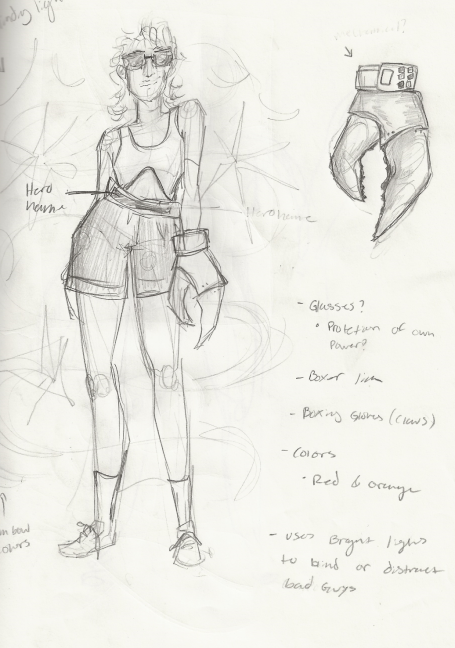 Hero
name
Hero name
- Glasses?
• Protection of own
Power?
- Boxer
- Boxing Gloves (claws)
- Colors
• Red & orange
- uses Bright lights
to blind or distract
bad guys